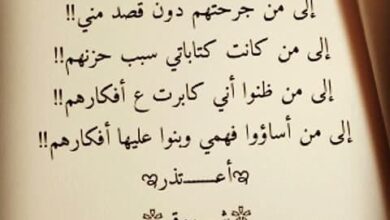 إلى من جرحتهم دون قصد مني!!
إلى من كانت كتاباتي سبب حزنهم!!
إلى من ظنوا أني كابرت ع أفكارهم!!
إلى من أساؤوا فهمي وبنوا عليها أفكارهم!!
أعـــتذر